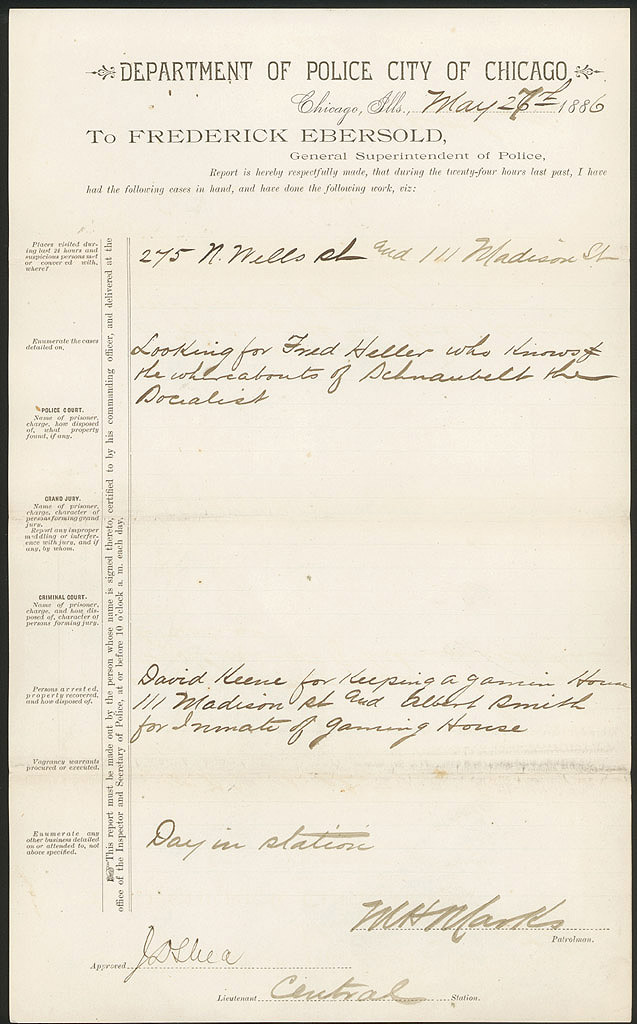 DEPARTMENT OF POLICE CITY OF CHICAGO
Chicago, Ills., May 27th 1886
To FREDERICK EBERSOLD,
General Superintendent of Police,
Report is hereby respectfully made, that during the twenty-four hours last past, I have
had the following cases in hand, and have done the following work, viz:
Places visited dur-
ing last 24 hours and
suspicious persons met
or conversed with,
where?
275 N. Wells st and 111 Madison St
Enumerate the cases
detailed on.
Looking for Fred Heller who Knows
the whereabouts of Schnaubelt the
Socialist
POLICE COURT.
Name of prisoner,
charge, how disposed
of, what property
found, if any.
GRAND JURY.
Name of prisoner,
charge, character of
persons forming grand
jury.
Report any improper
meddling or interfer-
ence with jury, and if
any, by whom.
CRIMINAL COURT.
Name of prisoner,
charge, and how dis-
posed of, character of
persons forming jury.
Persons arrested,
property recovered,
and how disposed of.
David Keene for Keeping a gamin House
111 Madison st and Albert Smith
for Inmate of gaming House
Vagrancy warrants
procured or executed.
Enumerate any
other business detailed
on or attended to, not
above specified.
Day in station
This report must be made out by the person whose name is signed thereto, certified to by his commanding officer, and delivered at the
office of the Inspector and Secretary of Police, at or before 10 o'clock a. m. each day.
M H Marks
Patrolman.
Approved J D Shea
Lieutenant Central Station.